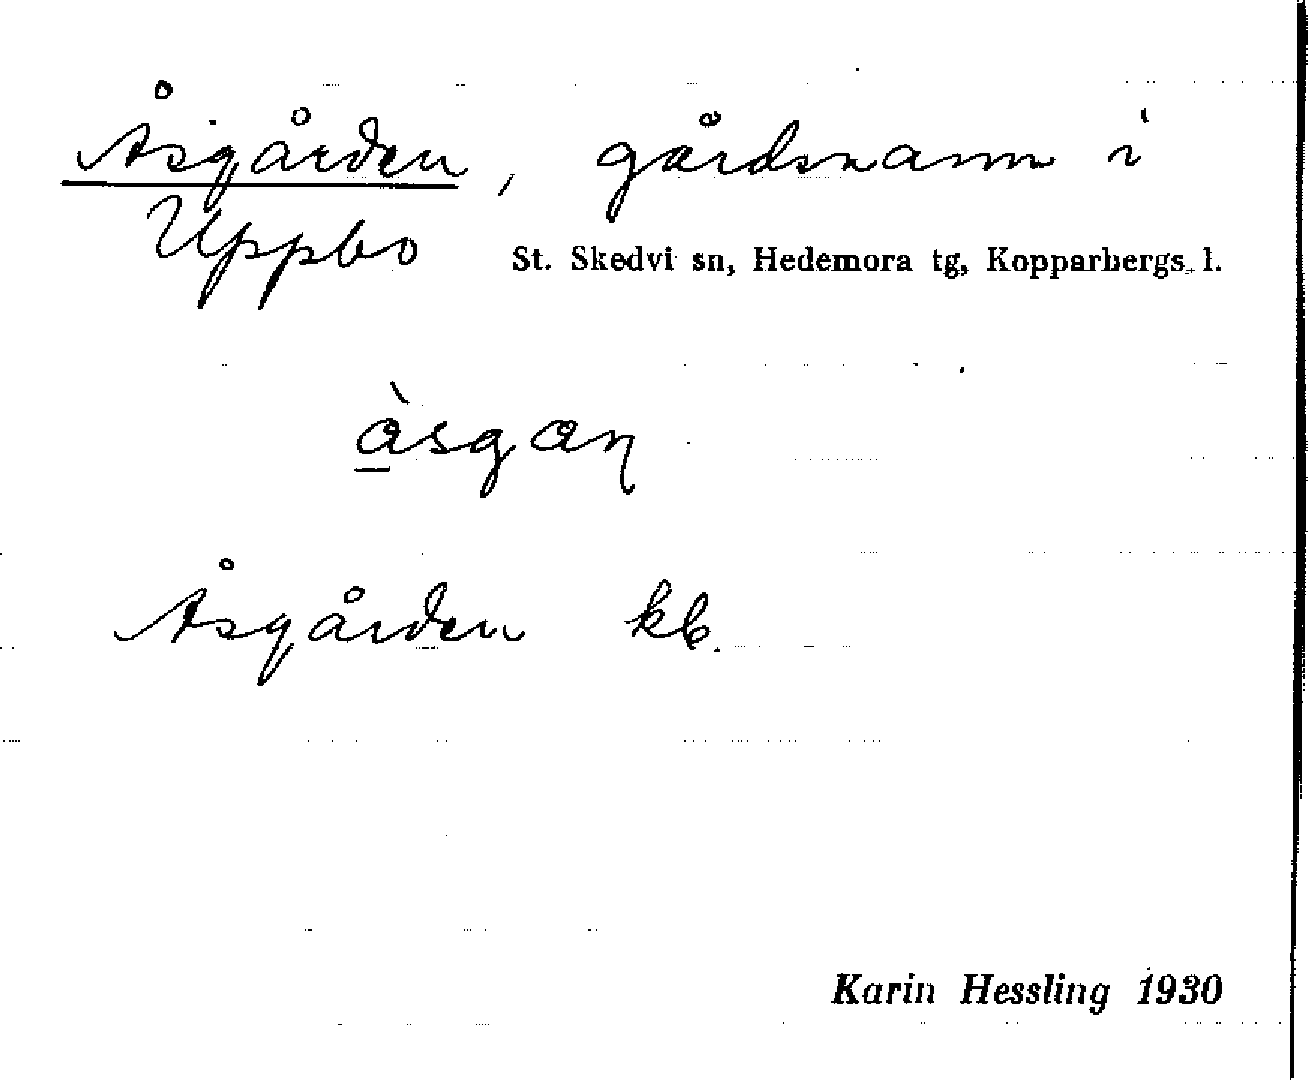 Åsgården, gårdsnamn i
Uppbo St. Skedvi sn, Hedemora tg, Kopparbergs l.
Åsgården kb.
Karin Hessling 1930